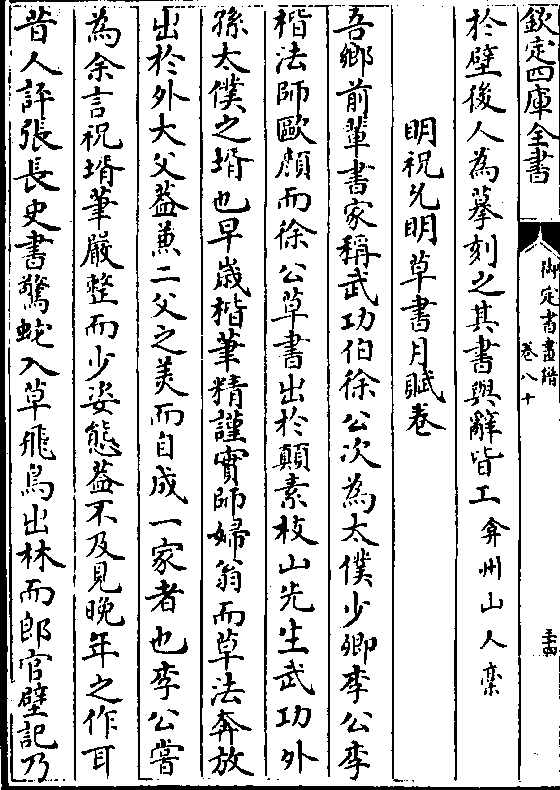 欽定四庫全書
御定書畫譜
卷八十
三十四
於壁後人為摹刻之其書與辭皆工弇州山人稾
明祝允明草書月賦卷
吾鄉前輩書家稱武功伯徐公次為太僕少卿李公李
楷法師歐顏而徐公草書出於顛素枝山先生武功外
孫太僕之壻也早歲楷筆精謹實師婦翁而草法奔放
出於外大父葢兼二父之美而自成一家者也李公嘗
為余言祝壻筆嚴整而少姿態葢不及見晚年之作耳
昔人評張長史書驚蛇入草飛鳥出林而郎官壁記乃